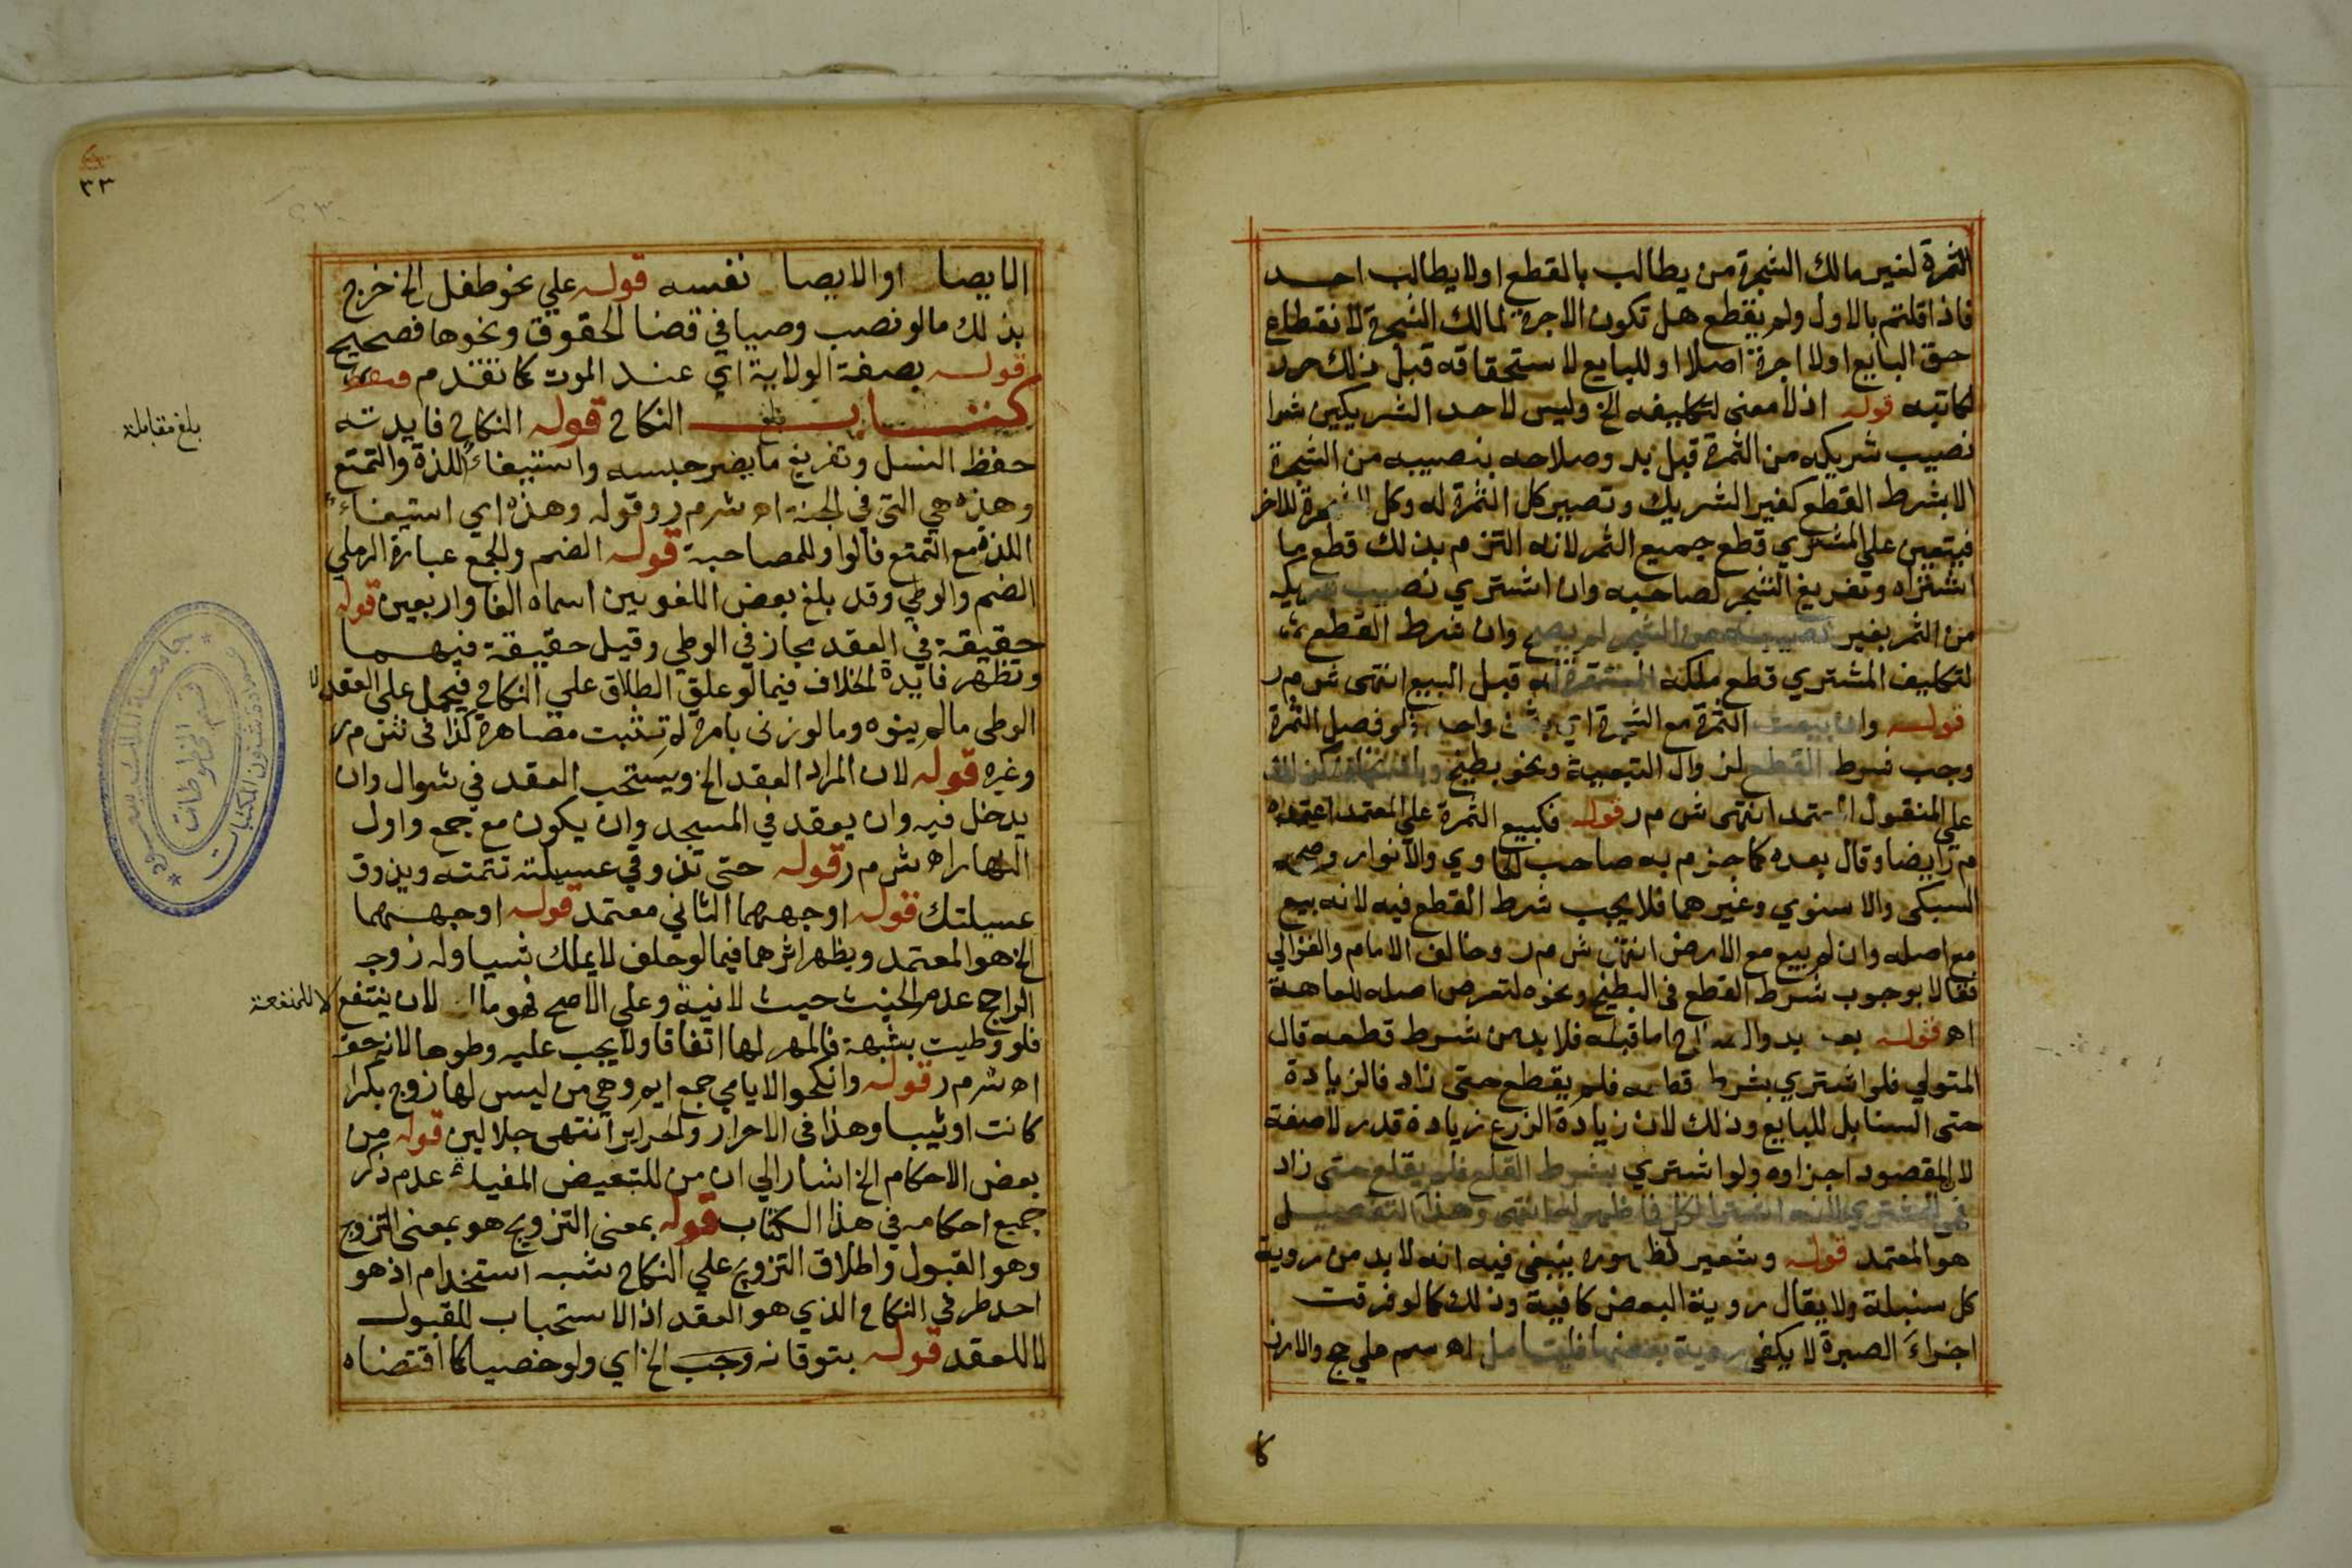 الثمرة لغير مالك الشجرة من يطالب بالقطع اولا يطالب احد
فاذا قلتم بالاول ولم يقطع هل تكون الاجرة لمالك الشجرة لانقطاع
حق البايع اولا اجرة اصلا او للبايع لاستحقاقه قبل ذلك حرر
لكاتبه قوله اذ لا معنى لتكليفه الخ وليس لاحد الشريكين شرا
نصيب شريكه من الثمرة قبل بدو صلاحه بنصيبه من الشجرة
الا بشرط القطع كغير الشريك وتصير كل الثمرة له وكل الشجرة للاخر
فيتعين على المشتري قطع جميع الثمر لانه التزم بذلك قطع ما
اشتراه وتفريغ الشجر لصاحبه وان اشتري نصيب شريكه
من الثمر بغير نصيبه من الشجر لم يصح وان شرط القطع
لتكليف المشتري قطع ملكه المستقر له قبل البيع انتهى ش م ر
قوله وان بيعت الثمرة مع الشجرة اي بثمن واحد فلو فصل الثمرة
وجب شرط القطع لزوال التبعية ونحو بطيخ
على المنقول المعتمد انتهى ش م ر قوله فكبيع الثمرة على المعتمد اعتمده
م ر ايضا وقال بعده كما جزم به صاحب الحاوي والانوار وصححه
السبكى والاسنوي وغيرهما فلا يجب شرط القطع فيه لانه بيع
مع اصله وان لم يبع مع الارض انتهى ش م ر وخالف الامام والغزالي
فقالا بوجوب شرط القطع في البطيخ ونحوه لتعرض اصله للعاهة
اه قوله بعد بدو الخ اما قبله فلا بد من شرط قطعه قال
المتولي فلو اشتري بشرط قطعه فلم يقطع حتى زاد فالزيادة
حتى السنابل للبايع وذلك لان زيادة الزرع زيادة قدر لا صفة
لان المقصود اجزاوه ولو اشتري بشرط القلع فلم يقلع حتى زاد
فهي للمشتري لانه اشترا الكل فا ظهر له انتهى وهذا التفصيل
هو المعتمد قوله وشعير لظهوره ينبغي فيه انه لا بد من روية
كل سنبلة ولا يقال روية البعض كافية وذلك كما لو فرقت
اجزاء الصبرة لا يكفي روية بعضها فليتامل اه سم علي حج والارز
كا
٣٣
الايصا او الايصا نفسه قوله علي نحو طفل الخ خرج
بذلك ما لو نصب وصيا في قضا الحقوق ونحوها فصحيح
قوله بصفة الولاية اي عند الموت كما تقدم فقط
كتاب النكاح قوله النكاح فايدته
بلغ مقابلة
حفظ النسل وتفريغ ما يضر حبسه واستيفاء اللذة والتمتع
وهذه هي التي في الجنة اه ش م ر وقوله وهذه اي استيفاء
اللذة مع التمتع فالواو للمصاحبة قوله الضم والجمع عبارة الرملي
الضم والوطي وقد بلغ بعض اللغويين اسماه الفا واربعين قوله
حقيقة في العقد مجاز في الوطي وقيل حقيقة فيهما
وتظهر فايدة الخلاف فيما لو علق الطلاق علي النكاح فيحمل على العقد لا
الوطي ما لم ينوه وما لو زنى بامراة لم تثبت مصاهرة كذا في ش م ر
وغيره قوله لان المراد العقد الخ ويستحب العقد في شوال وان
يدخل فيه وان يعقد في المسجد وان يكون مع جمع واول
النهار اه ش م ر قوله حتى تذوقي عسيلته تتمته ويذوق
عسيلتك قوله اوجههما الثاني معتمد قوله اوجههما
الخ هو المعتمد ويظهر اثرهما فيما لو حلف لا يملك شيا وله زوجة
الراجح عدم الحنث حيث لا نية وعلى الاصح فهو ما لان ينتفع لا للمنفعة
فلو وطيت بشبهة فالمهر لها اتفاقا ولا يجب عليه وطوها لانه حقه
اه ش م ر قوله وانكحوا الايامي جمع ايم وهي من ليس لها زوج بكرا
كانت او ثيبا وهذا في الاحرار والحراير انتهى جلالين قوله من
بعض الاحكام الخ اشار الي ان من للتبعيض المفيد عدم ذكر
جميع احكامه في هذا الكتاب قوله بمعنى التزويج هو بمعنى التزوج
وهو القبول واطلاق التزويج علي النكاح شبه استخدام اذ هو
احد طرفي النكاح الذي هو العقد اذ الاستحباب للقبول
لا للعقد قوله بتوقانه وجب الخ اي ولو خصيا كما اقتضاه
جامعة الملك سعود
عمادة شئون المكتبات
قسم المخطوطات